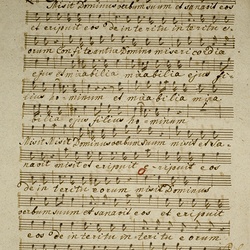 Misit Dominus verbum suum et sanavit eos
et eripuit eos de interitu interitu e-
orum Confiteantur Domino misericordia
ejus et mirabilia mirabilia ejus fi-
lius hominum et mirabilia mira
bilia ejus filius hominum
Misit Misit Dominus verbum suum misit et sa-
navit misit et eripuit eripuit eos
de interitu eorum misit Dominus
verbum suum et sanavit eos et eripuit
eos de interitu interitu eorum